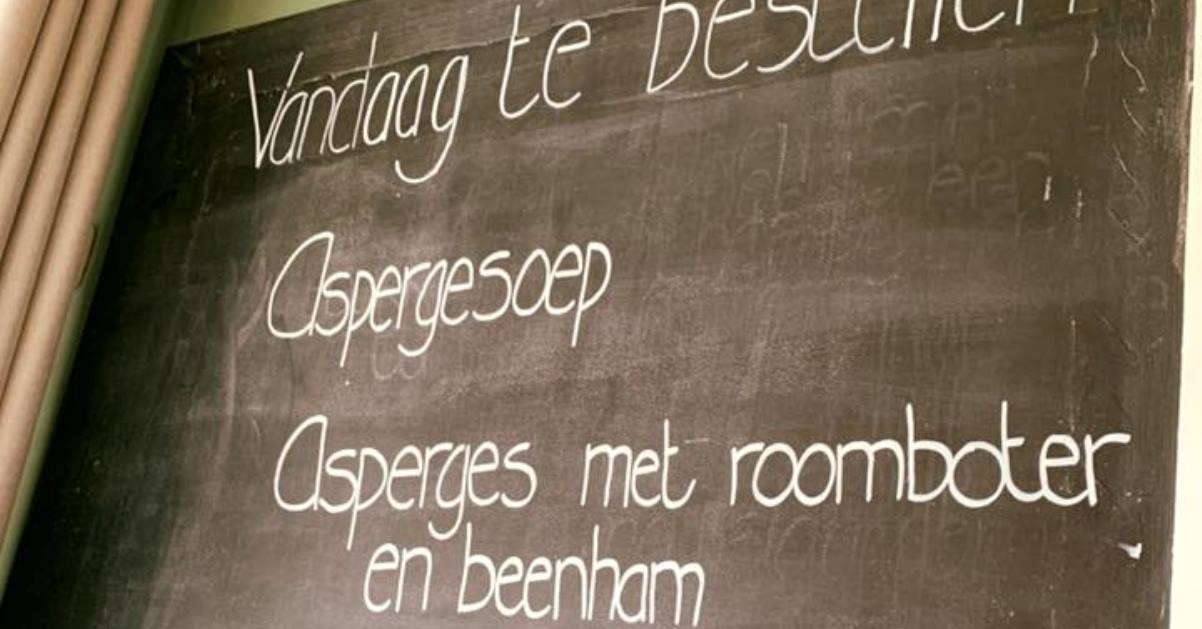 Vandaag te
Aspergesoep
Asperges met roomboter
en beenham